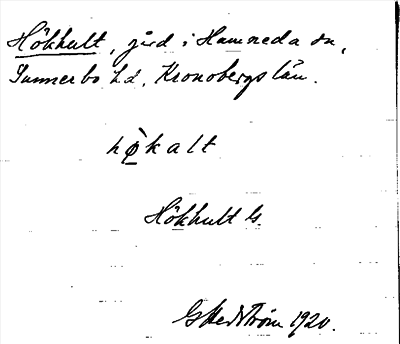 Hökhult, gård i Hamneda sn,
Sunnerbo hd, Kronobergs län.
hø̀kalt
Hökhult G.
G Hedström 1920.